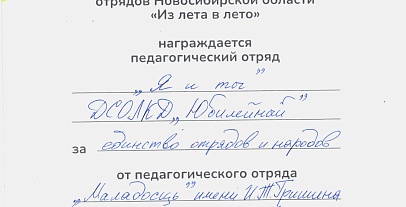 отрядов Новосибирской области
«Из лета в лето»
награждается
педагогический отряд
„Я и ты”
ДСОЛКД „Юбилейный”
за единство отрядов и народов
от педагогического отряда
„Маладосць” имени И.Т. Гришина